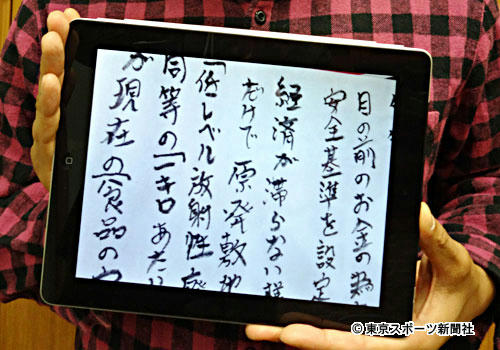 目の前のお金の為
安全基準を設定
経済が滞らない様
だけで原発敷地
「低レベル放射性廃
同等の「1キロあたり
が現在の「食品の
©東京スポーツ新聞社